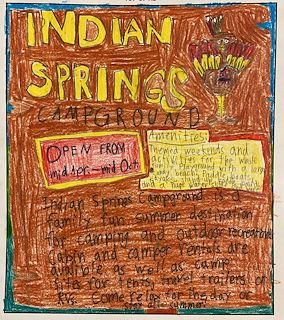 INDIAN
SPRINGS
CAMPGROUND
OPEN FROM
mid Apr. - mid Oct.
Amenities:
Themed weekends and
activities for the whole
family. Playground, with a large
and a huge water
Indian Springs Campground is a
family fun summer destination
for camping and outdoor recreation.
Cabin and camper rentals are
availible as well as camp
sites for tents, travel trailers or
RVs. Come for the day or
stay all summer.